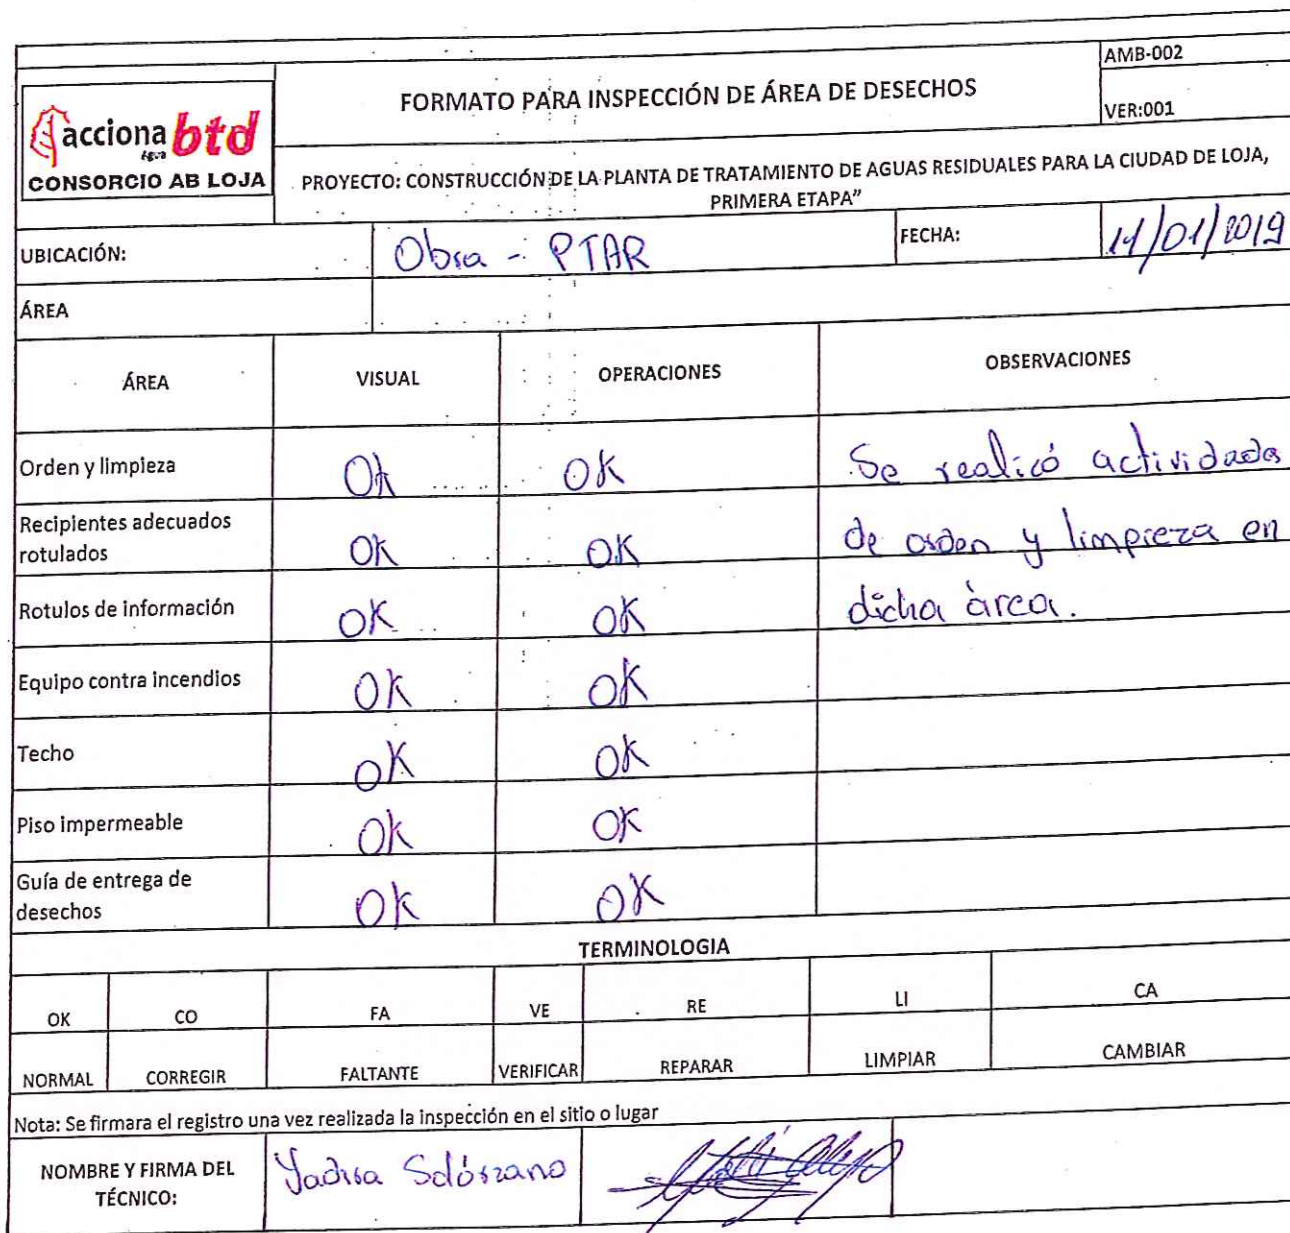 AMB-002
FORMATO PARA INSPECCIÓN DE ÁREA DE DESECHOS
VER:001
acciona btd
agua
CONSORCIO AB LOJA
PROYECTO: CONSTRUCCIÓN DE LA PLANTA DE TRATAMIENTO DE AGUAS RESIDUALES PARA LA CIUDAD DE LOJA,
PRIMERA ETAPA"
UBICACIÓN: Obra - PTAR FECHA: 11/01/2019
ÁREA
ÁREA VISUAL OPERACIONES OBSERVACIONES
Orden y limpieza OK OK Se realicó actividades
Recipientes adecuados
rotulados OK OK de orden y limpieza en
Rotulos de información OK OK dicha área.
Equipo contra incendios OK OK
Techo OK OK
Piso impermeable OK OK
Guía de entrega de
desechos OK OK
TERMINOLOGIA
OK CO FA VE RE LI CA
NORMAL CORREGIR FALTANTE VERIFICAR REPARAR LIMPIAR CAMBIAR
Nota: Se firmara el registro una vez realizada la inspección en el sitio o lugar
NOMBRE Y FIRMA DEL
TÉCNICO: Yadira Solórzano